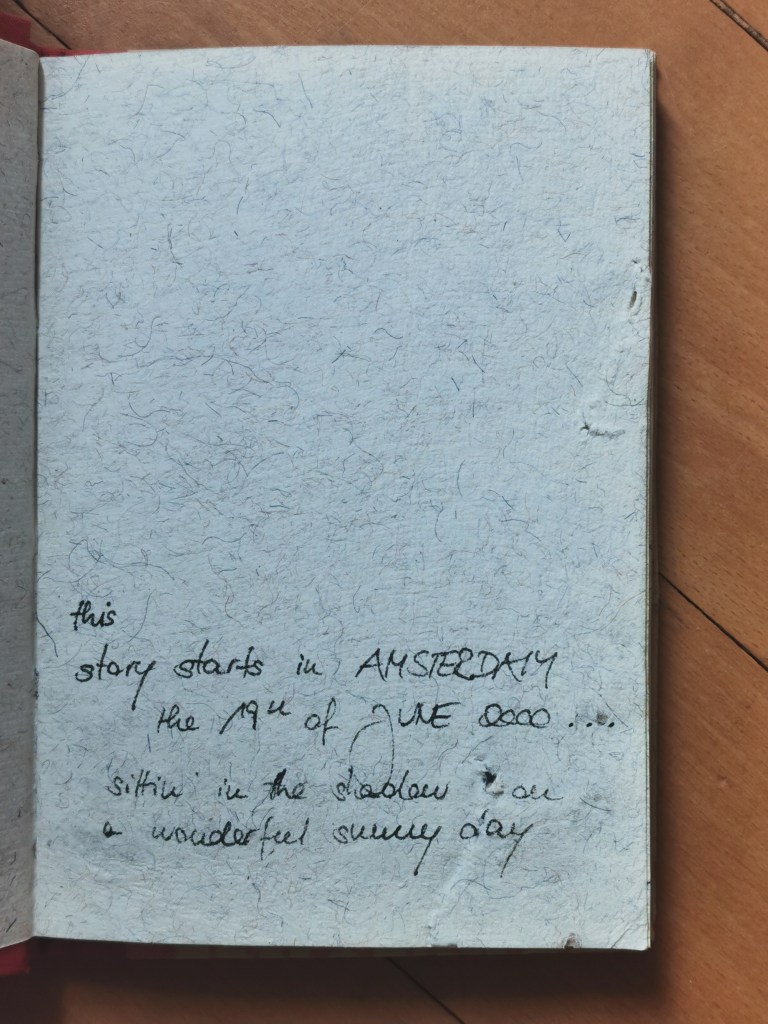 this
story starts in AMSTERDAM
the 19th of JUNE 2000 ....
sittin' in the shadow on
a wonderful sunny day